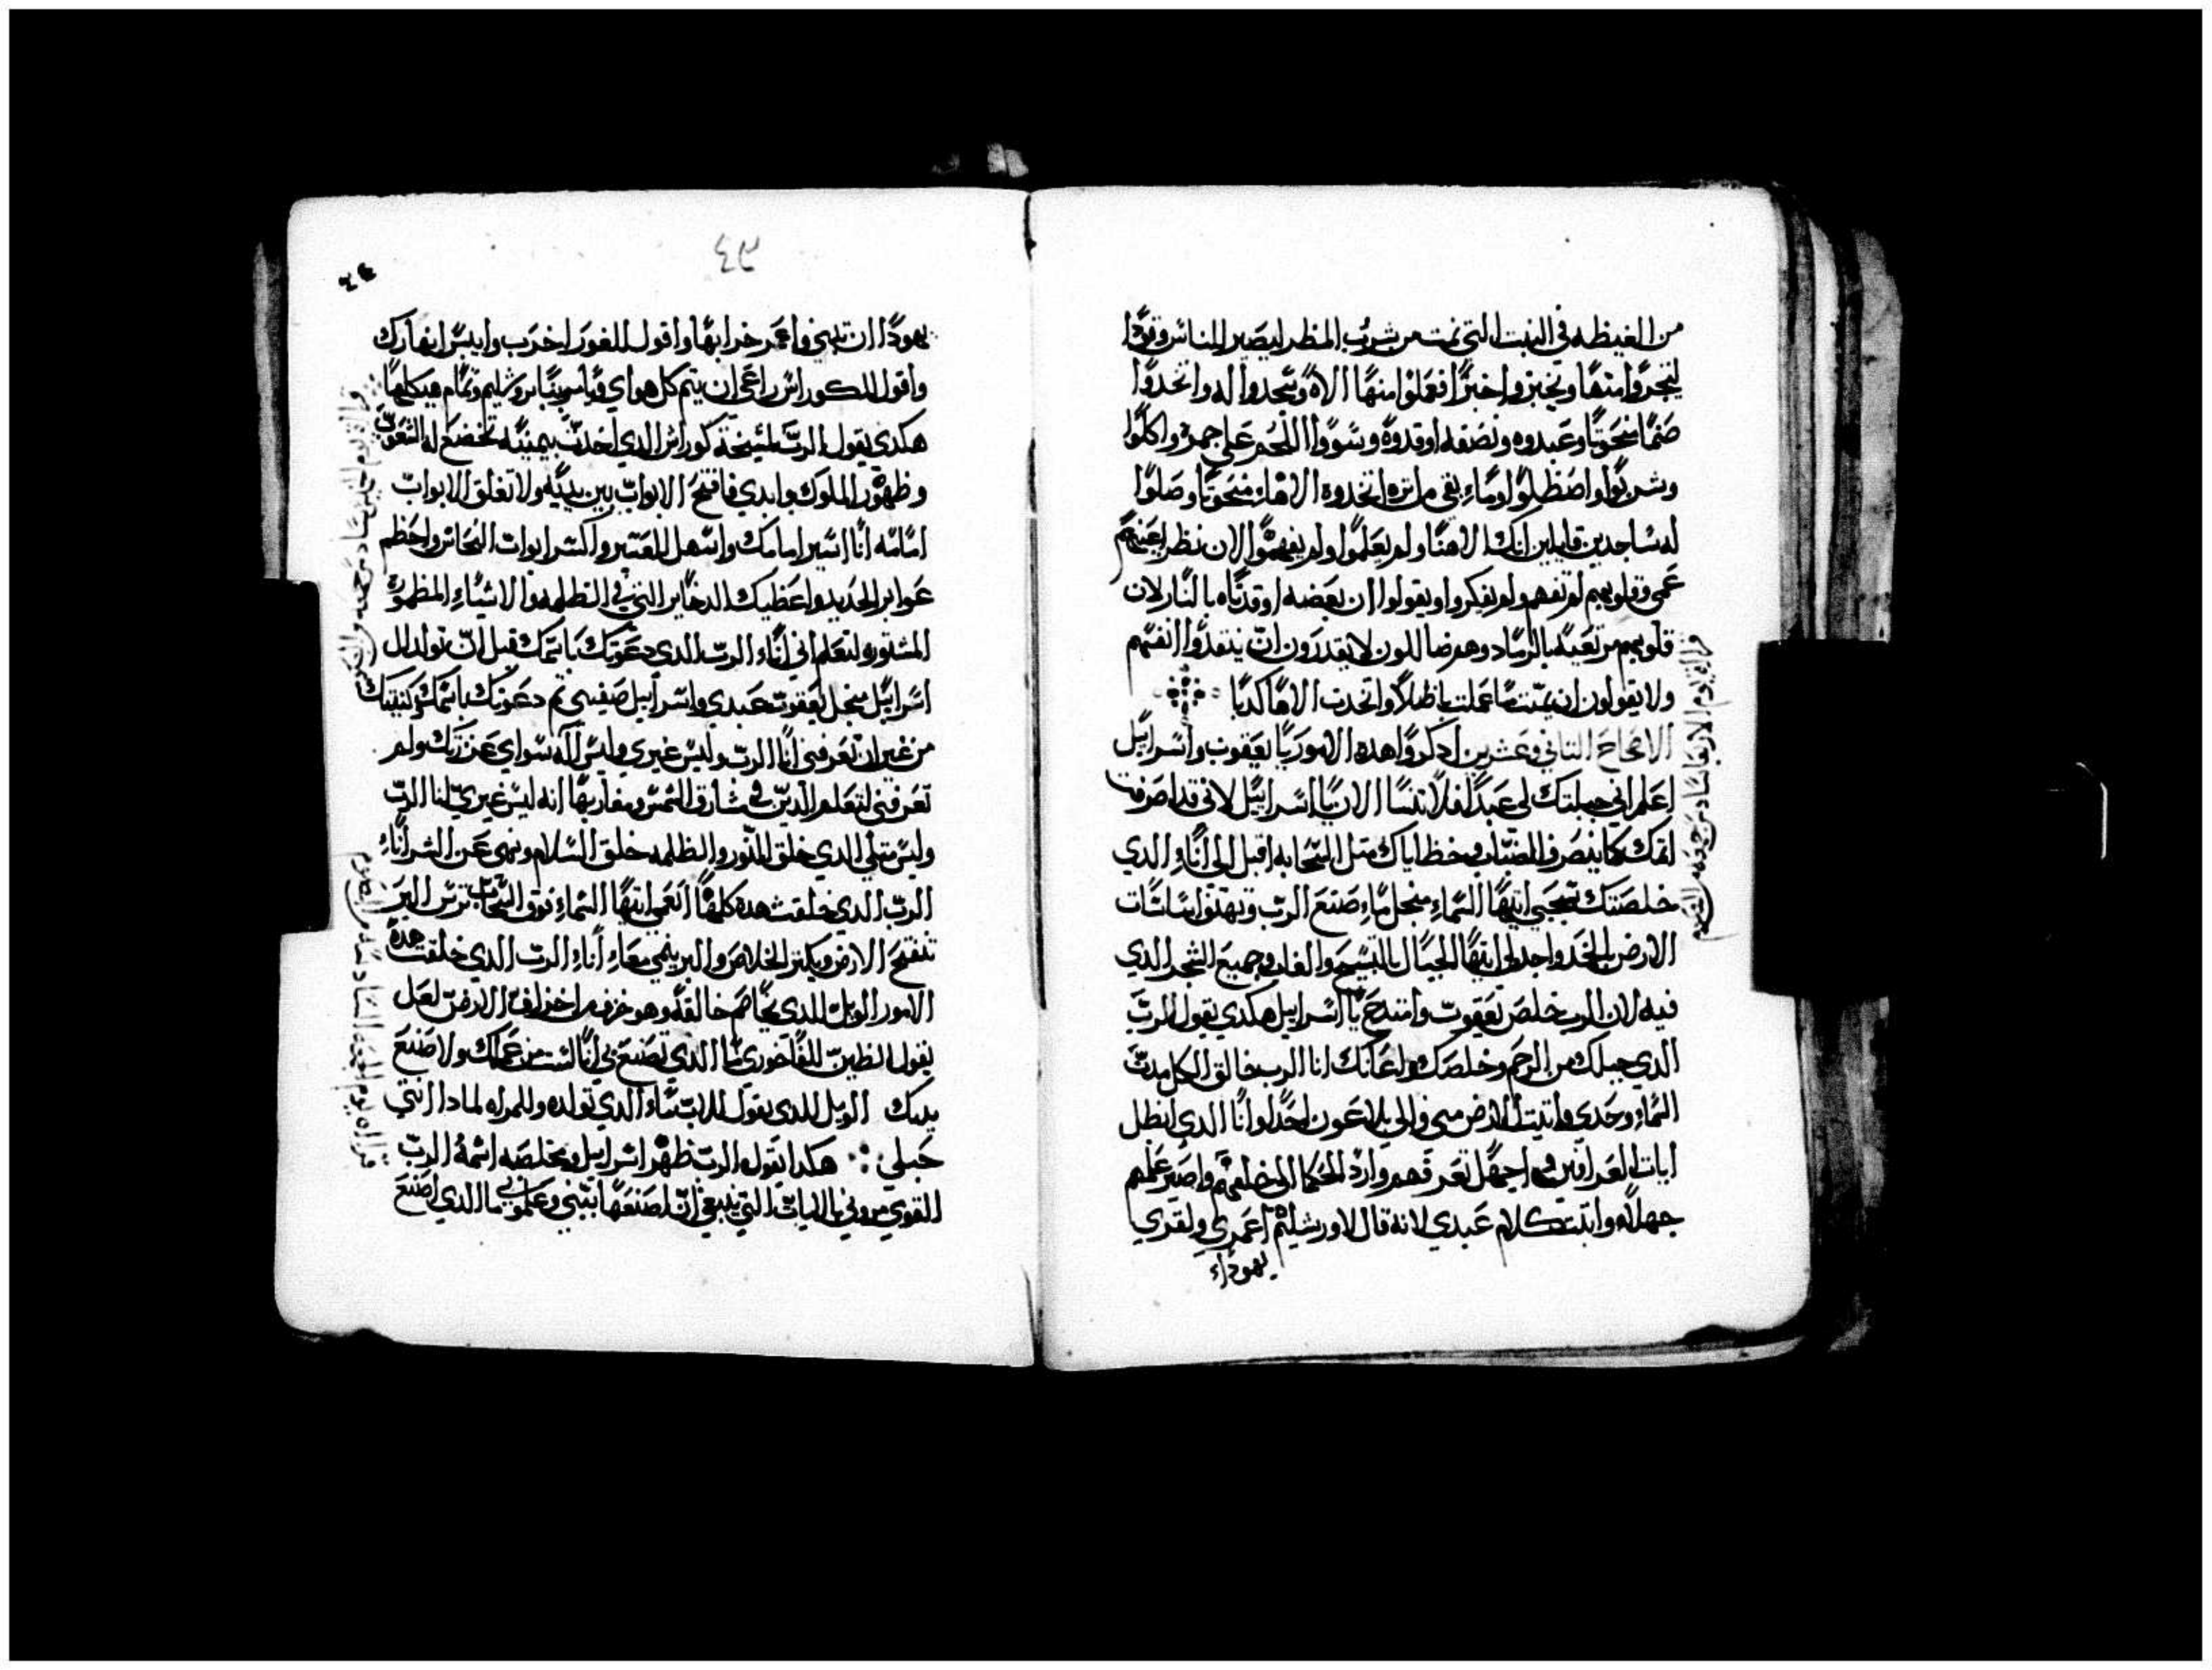 من الغيظه في النبت التي نمت من شرب المطر ليصير للناس وقودًا
ليتجروا منها ويخبزوا خبزًا فعملوا منها الاهً وسجدوا له واتخدوا
صنمًا منحوتًا وعبدوه ونصفه اوقدوة وشووا اللحم على جمره واكلوا
وشربوا واصطلوا وماء بقي من اتره اتخدوة الاهاء منحوتًا وصلوا
له ساجدين قايلين انك الاهنا ولم يعلموا ولم يفهموا الان نظر اعينهم
عمي وقلوبهم لم تفهم ولم تفكر او يقولوا ان بعضه اوقدناه بالنار لان
قلوبهم مرتعبه بالرماد وهم ضاللون لا يقدرون ان ينقدوا انفسهم
ولا يقولون ان يميننا عملت باطلًا واتخدت الاهًا كدبًا
الاصحاح التاني وعشرين ادكروا هده الامور يا يعقوب واسراييل
اعلم اني جبلتك لي عبدًا فلا تنسا الان يا اسراييل لاني قد اصرفت
اتمك كما ينصرف الضباب وخطاياك متل السحابه اقبل الى اناء الدي
خلصتك تعجبي ايتها السماء منجل ماء صنع الرب وتهتز اساسات
الارض بالمجد واجدلي ايتها الجبال بالتسبيح والغاب وجميع الشجر الدي
فيه لان الرب خلص يعقوب وامتدح يا اسراييل هكدي يقول الرب
الدي جبلك من الرحم وخلصك واعانك انا الرب خالق الكل مددت
السماء وحدي واتبت الارض مني والي بلا عون احدًا وانا الدي ابطل
ايات العرافين واجهل تعرفهم وارد الحكما الى خلفهم واصير علمهم
جهلًا واتبت كلام عبدي لانه قال لاورشليم اعمري ولقري
يهوداء
قراة يوم الاربعا سادس جمعه من الصوم
٣٤
يهودا ان تبني واعمر خرابها واقول للغور اخرب وايبس انهارك
واقول لكوراش راعي ان يتم كل هواي وياسر بنا يروشليم وتمام هيكلها
هكدي يقول الرب لمسيحه كوراش الدي اخدت بيمينه تخضع له الشعوب
وظهور الملوك وابدي فافتح الابواب بين يديه ولا تغلق الابواب
امامه انا اسير امامك واسهل العسر واكسر ابواب النحاس واحطم
عوابر الحديد واعطيك الدخاير التي في الظلمه والاشياء المطموره
المستوره لتعلم اني اناء الرب الدي دعوتك باسمك قبل ان تولد ال
اسراييل منجل يعقوب عبدي واسراييل صفيي تم دعوتك باسمك وكنيتك
من غير ان تعرفني انا الرب وليس غيري وليس اله سواي عززتك ولم
تعرفني لتعلم الدين في مشارق الشمس ومغاربها انه ليس غيري انا الرب
وليس متلي الدي خلق النور والظلمه خلق السلام ونهى عن الشر اناء
الرب الدي خلقت هده كلها انعمي ايتها السماء فوق السحاب ترش البر
تنفتح الارض ويكتر الخلاص والبر ينمي معاء اناء الرب الدي خلقت هدة
الامور الويل للدي يخاصم خالقه وهو خزف من اخزاف الارض لعل
يقول الطين للفاخوري ما الدي تصنع بي انا لست من عملك ولا صنع
يديك الويل للدي يقول للاب ماء الدي تولده وللمراه لمادا انتي
حبلي هكدا يقول الرب طهر اسراييل ومخلصه اسمه الرب
القوي مروني بالايات التي ينبغي ان اصنعها ببني وعلموني ما الدي اصنع
قراة يوم الجمعه السادسه من الصوم